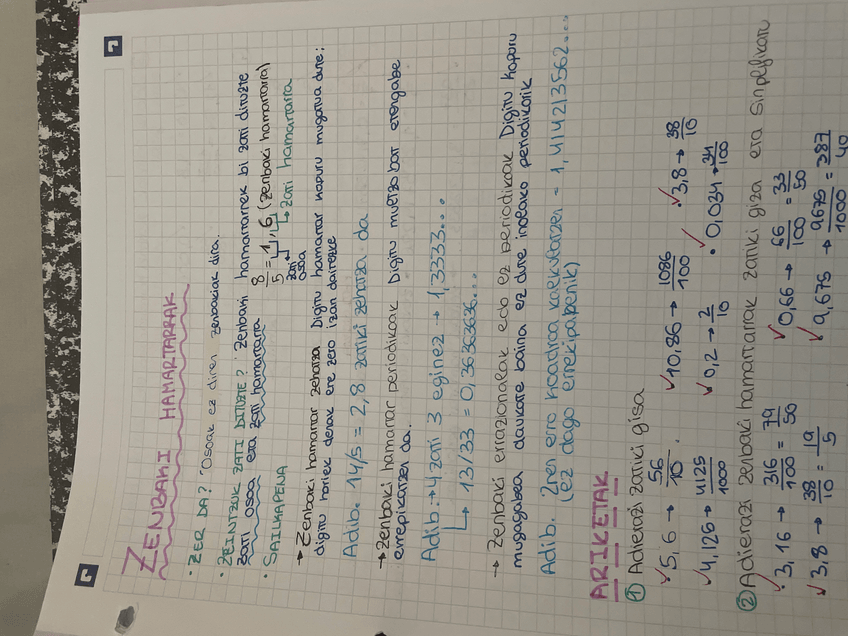 ZENBAKI HAMARTARRAK
· ZER DA? Osoak ez diren zenbakiak dira.
· ZEINTZUK ZATI DITUZTE? Zenbaki hamartarrek bi zati dituzte
zati osoa eta zati hamartarra 8/5 = 1,6 (zenbaki hamartarra)
zati osoa → zati hamartarra
· SAILKAPENA
→ Zenbaki hamartar zehatza Digitu hamartar kopuru mugatua dute;
digitu horiek denak ere zero izan daitezke
Adib. 14/5 = 2,8 zatiki zehatza da
→ Zenbaki hamartar periodikoak Digitu multzo bat etengabe
errepikatzen da.
Adib. → 4 zati 3 eginez → 1,3333...
↳ 13/33 = 0,36363636...
→ Zenbaki errazionalak edo ez periodikoak Digitu kopuru
mugagabea daukate baina ez dute inolako periodikorik
Adib. 2ren erro koadroa kalkulatzen = 1,414213562...
(ez dago errekipapenik)
ARIKETAK
① Adierazi zatiki gisa
✓ 5,6 → 56/10 · ✓ 10,86 → 1086/100 · ✓ 3,8 → 38/10
✓ 4,125 → 4125/1000 ✓ 0,2 → 2/10 ✓ · 0,034 → 34/100
② Adierazi zenbaki hamartarrak zatiki giza eta sinplifikatu
✓ 3,16 → 316/100 = 79/50 ✓ 0,66 → 66/100 = 33/50
✓ 3,8 → 38/10 = 19/5 ✓ 9,675 → 9675/1000 = 387/40